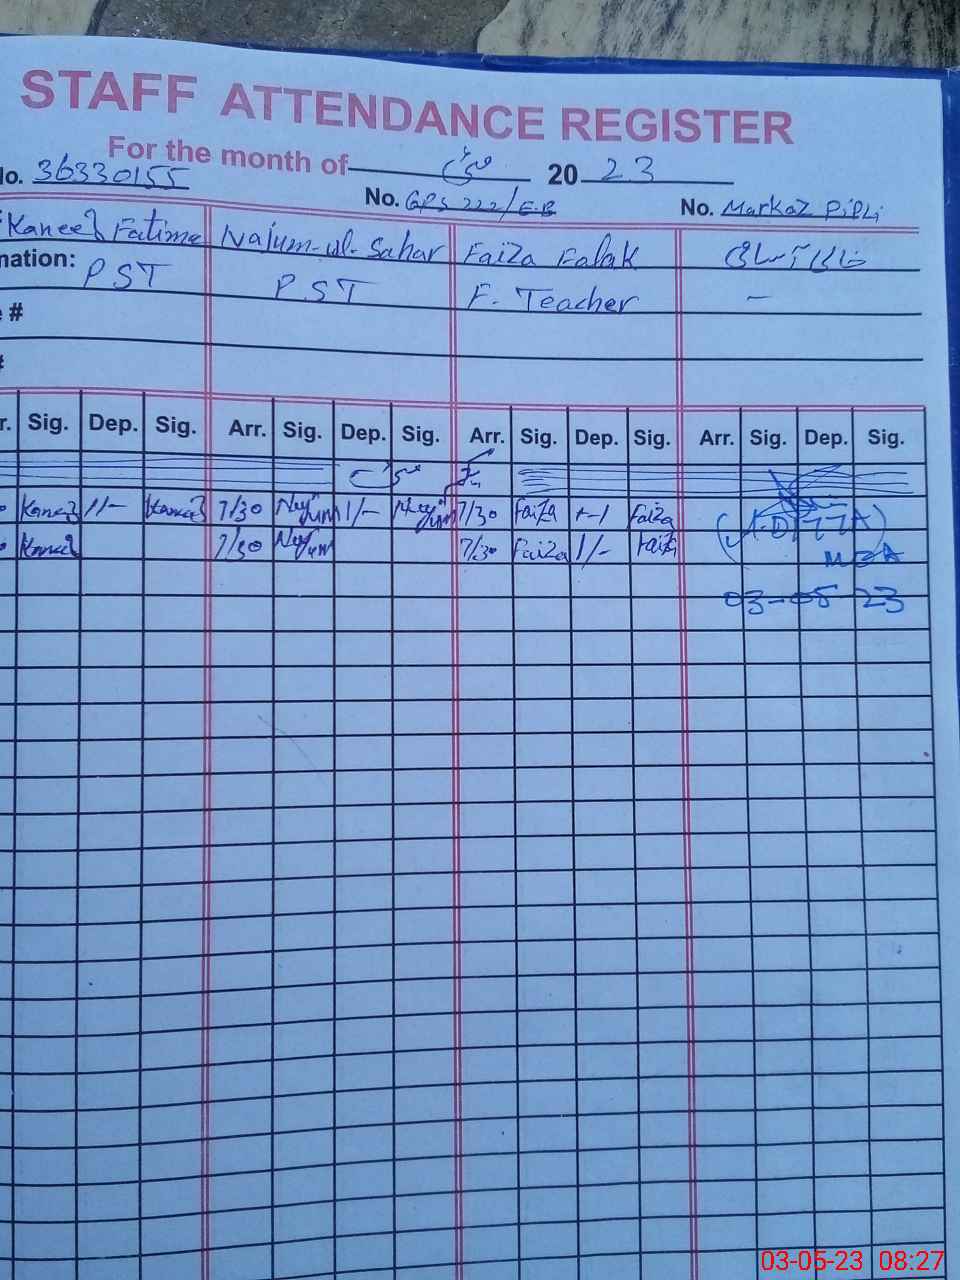 STAFF ATTENDANCE REGISTER
For the month of مئی 20 23
No. 36330155 No. GPS 222/E.B No. Markaz Pipli
Kaneez Fatima Najum-ul-Sahar Faiza Falak
nation: PST PST F. Teacher –
#
#
r. Sig. Dep. Sig. Arr. Sig. Dep. Sig. Arr. Sig. Dep. Sig. Arr. Sig. Dep. Sig.
Kaneez 1/- Kaneez 7/30 Najum 1/- Najum 7/30 Faiza 1/- Faiza
Kaneez 7/30 Najum 7/30 Faiza 1/- Faiza
03-05-23
03-05-23 08:27